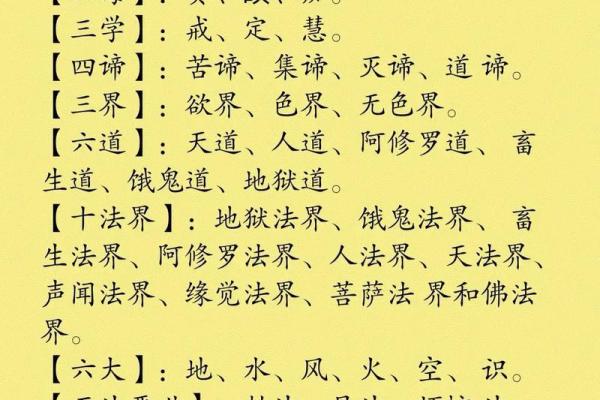 【三学】：戒、定、慧。
【四谛】：苦谛、集谛、灭谛、道 谛。
【三界】：欲界、色界、无色界。
【六道】：天道、人道、阿修罗道、 畜
生道、饿鬼道、地狱道。
【十法界】：地狱法界、饿鬼法界、 畜
生法界、阿修罗法界、人法界、天法界、
声闻法界、缘觉法界、菩萨法 界和佛法
界。
【六大】：地、水、风、火、空、 识。